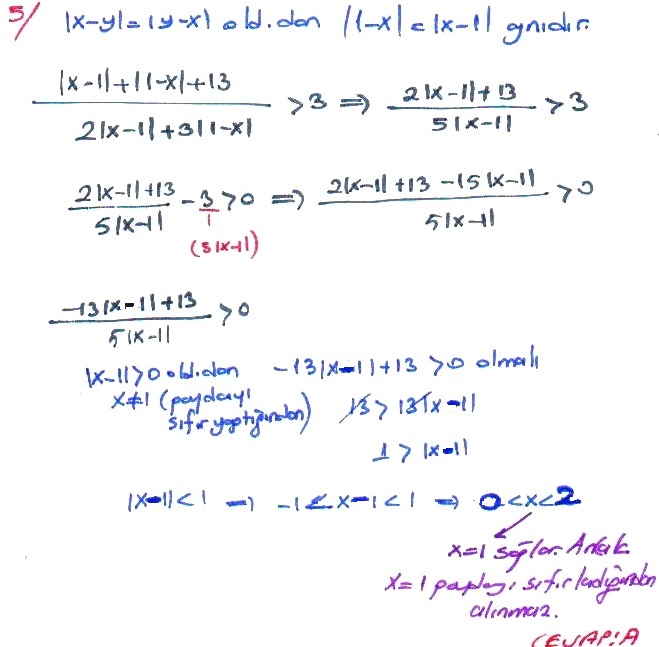 5/ |x-y|=|y-x| old.dan |1-x|=|x-1| aynıdır.
|x-1|+|1-x|+13 / 2|x-1|+3|1-x| >3 ⇒ 2|x-1|+13 / 5|x-1| >3
2|x-1|+13 / 5|x-1| - 3/1 >0 ⇒ 2|x-1|+13-15|x-1| / 5|x-1| >0
(5|x-1|)
-13|x-1|+13 / 5|x-1| >0
|x-1|>0 old.dan -13|x-1|+13 >0 olmalı
x≠1 (paydayı sıfır yaptığından) 13 > 13|x-1|
1 > |x-1|
|x-1|<1 → -1<x-1<1 ⇒ 0<x<2
x=1 sağlar. Ancak
x=1 paydayı sıfırladığından
alınmaz.
CEVAP:A